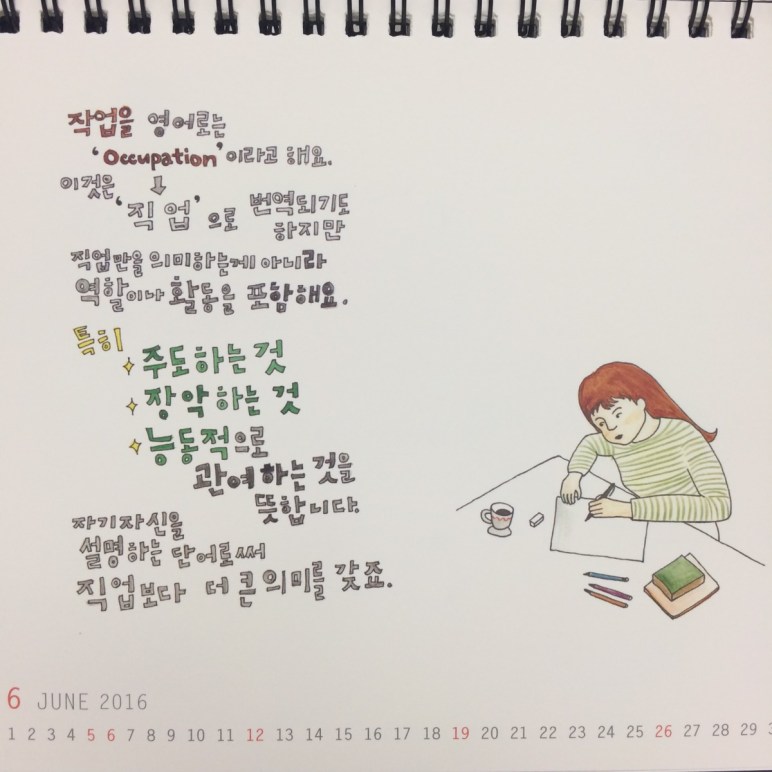 작업을 영어로는
'Occupation'이라고 해요.
이것은
'직업'으로 번역되기도
하지만
직업만을 의미하는게 아니라
역할이나 활동을 포함해요.
특히
주도하는 것
장악하는 것
능동적으로
관여하는 것을
뜻합니다.
자기자신을
설명하는 단어로써
직업보다 더 큰 의미를 갖죠.
6 JUNE 2016
1 2 3 4 5 6 7 8 9 10 11 12 13 14 15 16 17 18 19 20 21 22 23 24 25 26 27 28 29